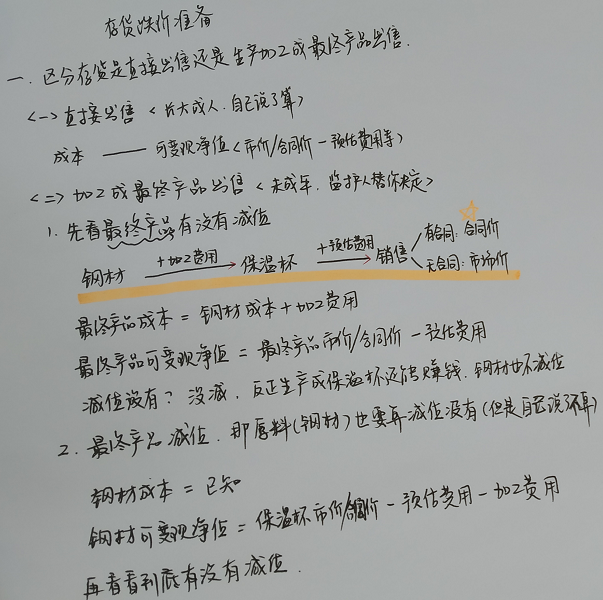 存货跌价准备
一.区分存货是直接出售还是生产加工成最终产品出售.
<一>直接出售<长大成人.自己说了算>
成本 —— 可变现净值<市价/合同价-预估费用等>
<二>加工成最终产品出售<未成年.监护人替你决定>
1.先看最终产品有没有减值
+加工费用 +预估费用 有合同:合同价
钢材 → 保温杯 → 销售
无合同:市场价
最终产品成本=钢材成本+加工费用
最终产品可变现净值=最终产品市价/合同价-预估费用
减值没有?没减.反正生产成保温杯还能赚钱.钢材也不减值
2.最终产品减值.那原料(钢材)也要弄减值没有(但是自己说了不算)
钢材成本=已知
钢材可变现净值=保温杯市价/合同价-预估费用-加工费用
再看看到底有没有减值.